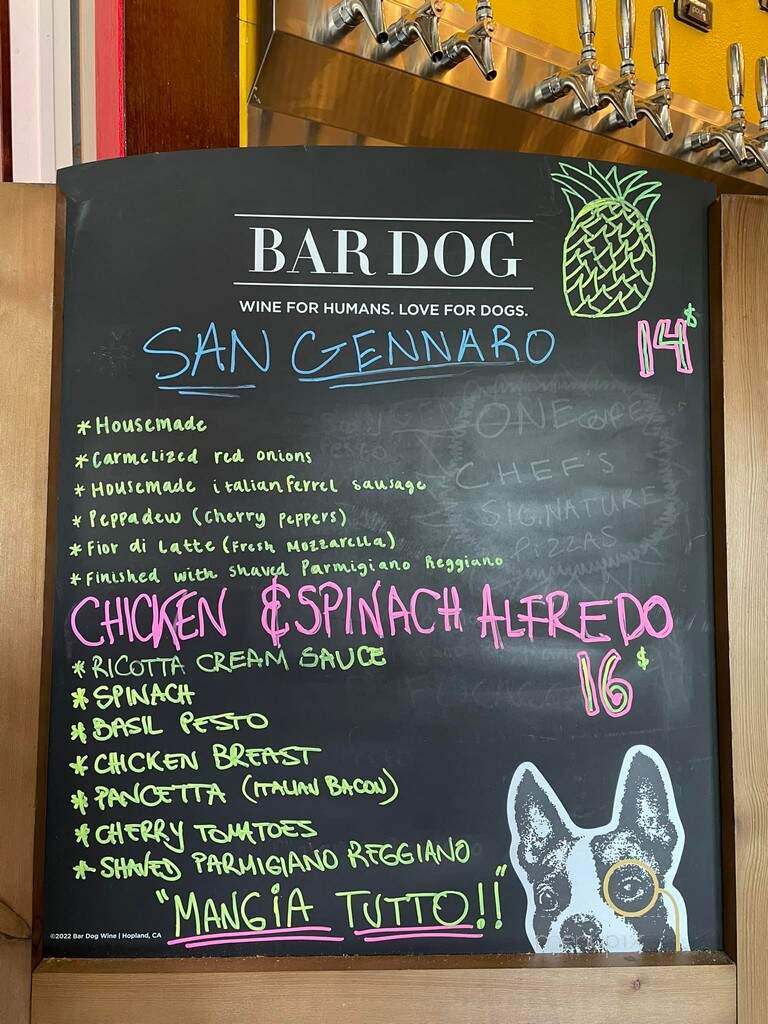 BAR DOG
WINE FOR HUMANS. LOVE FOR DOGS.
SAN GENNARO
14$
*Housemade
*Carmelized red onions
*Housemade italian ferrel sausage
*Peppadew (cherry peppers)
*Fior di Latte (Fresh Mozzarella)
*Finished with shaved Parmigiano Reggiano
ONE
CHEF'S
SIGNATURE
PIZZAS
CHICKEN & SPINACH ALFREDO
16$
*RICOTTA CREAM SAUCE
*SPINACH
*BASIL PESTO
*CHICKEN BREAST
*PANCETTA (ITALIAN BACON)
*CHERRY TOMATOES
*SHAVED PARMIGIANO REGGIANO
"MANGIA TUTTO!!"
©2022 Bar Dog Wine | Hopland, CA